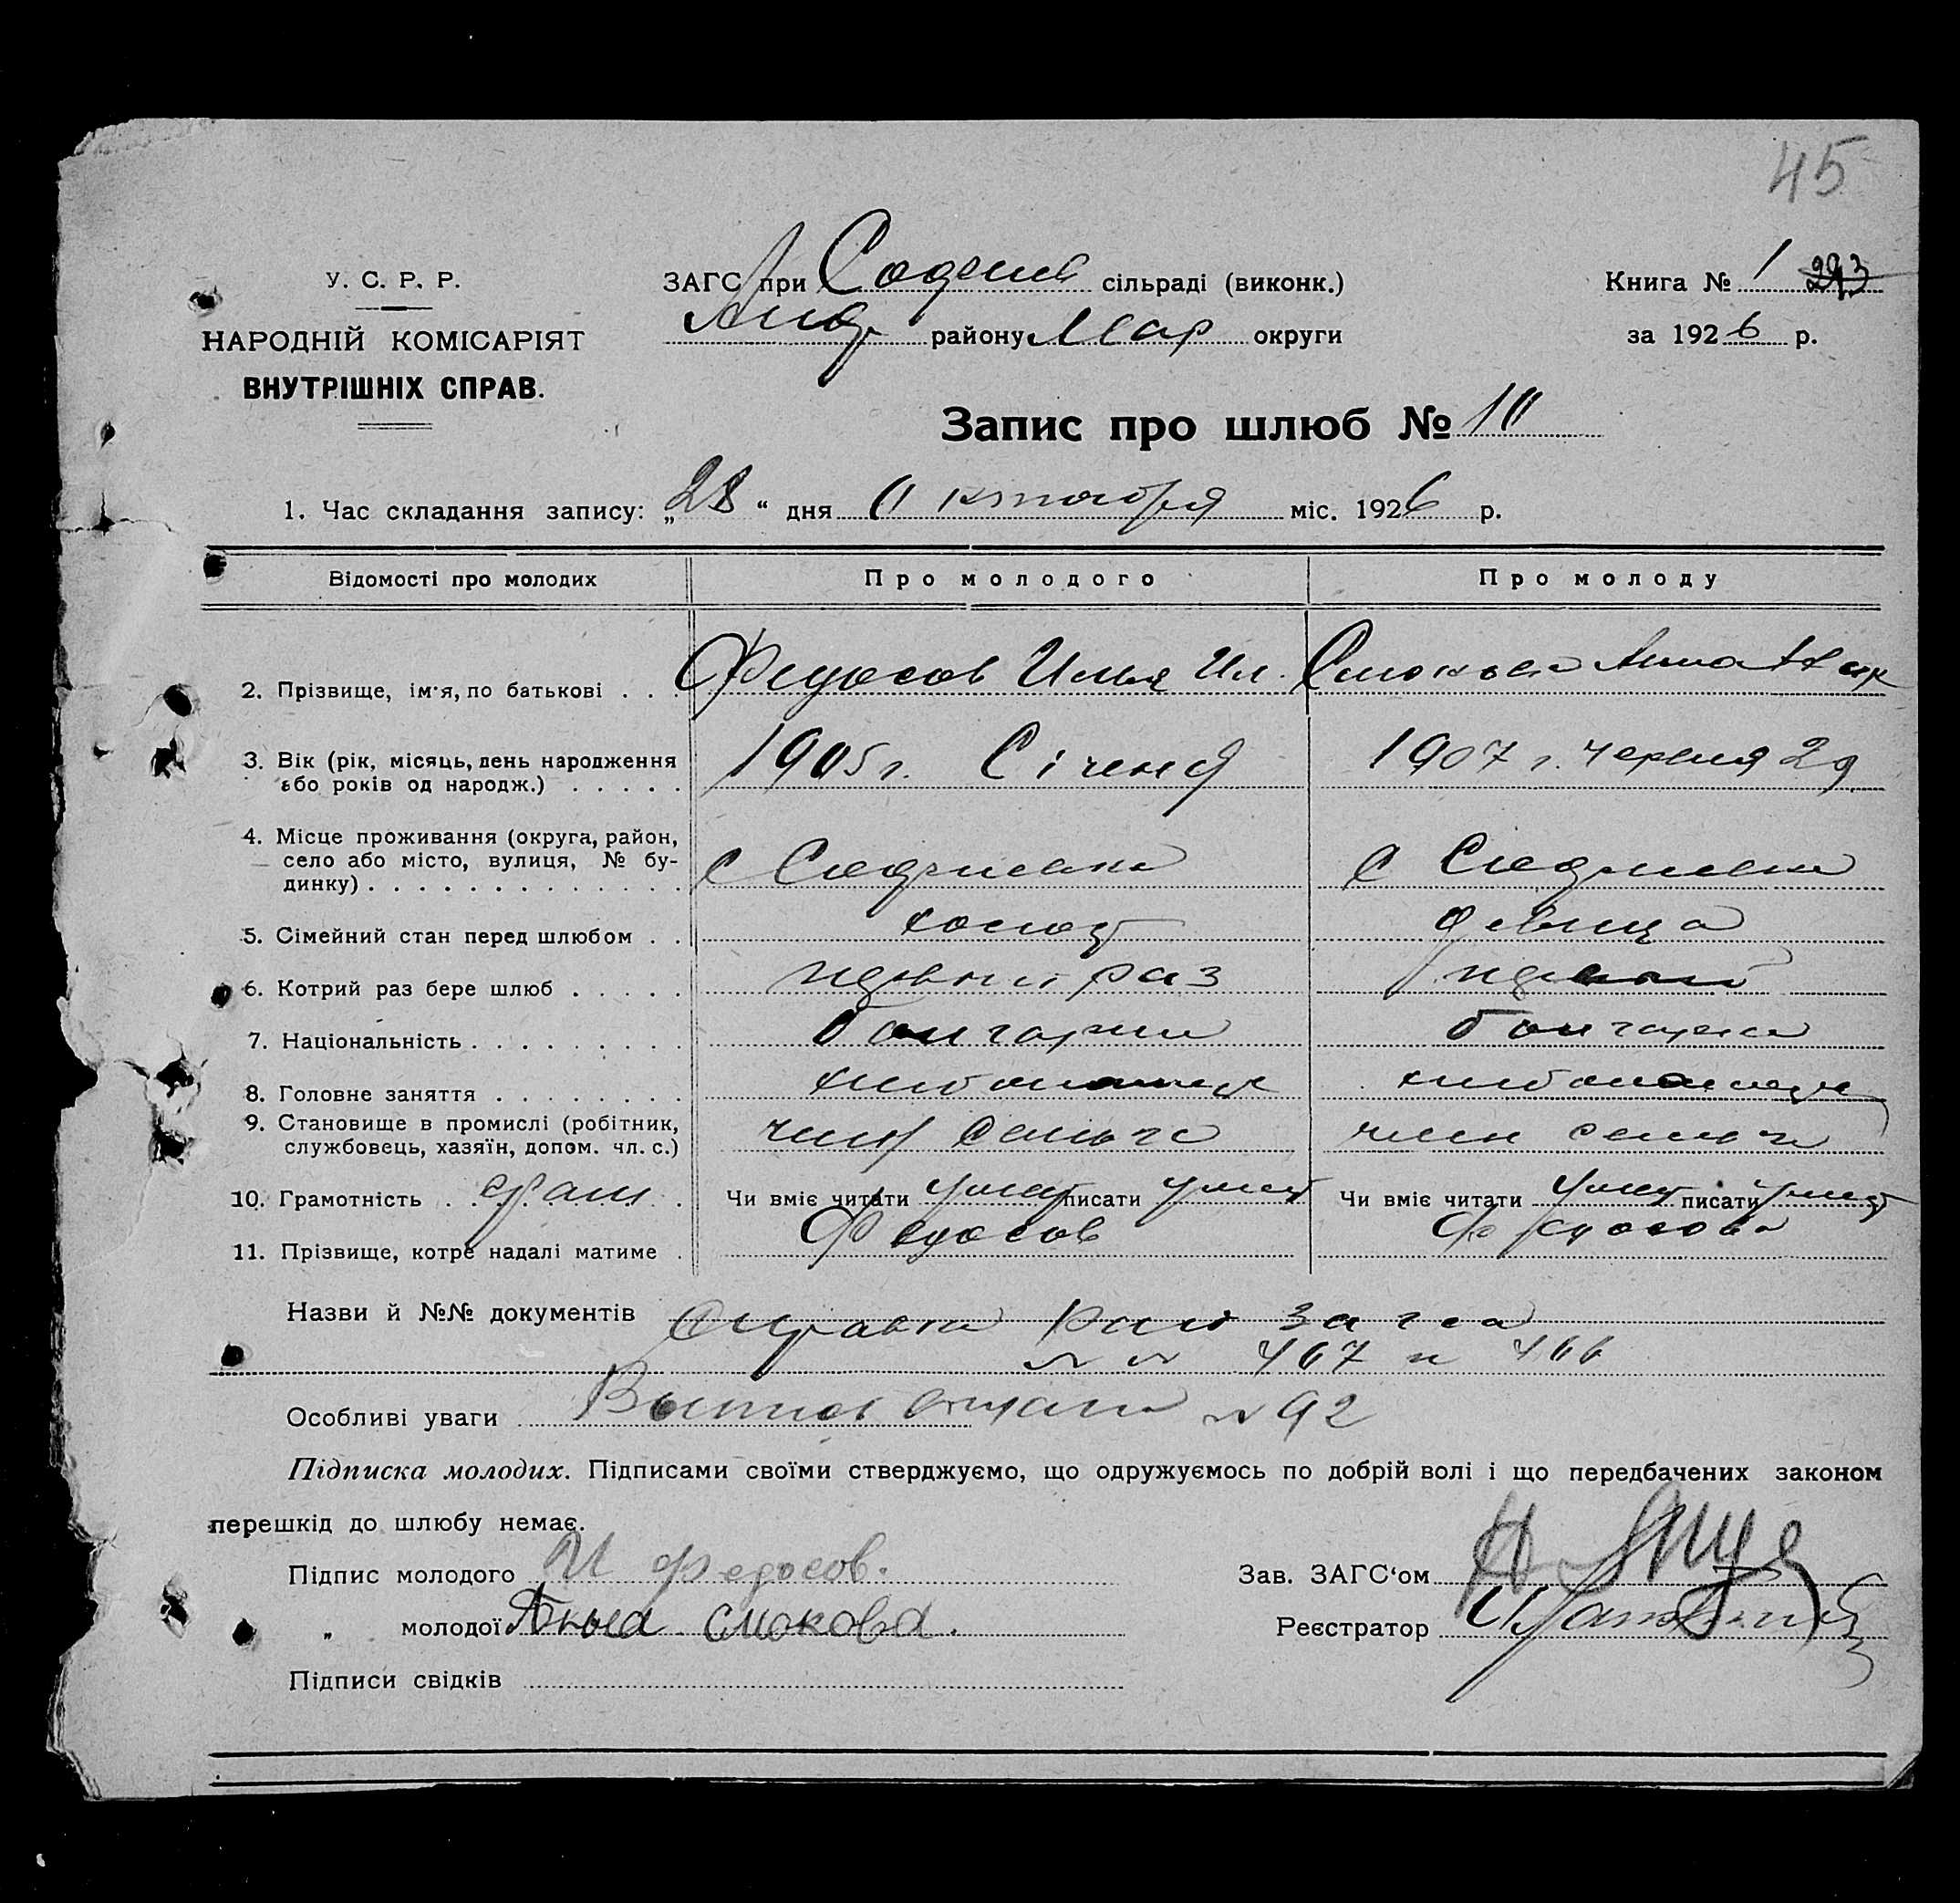 45
У. С. Р. Р.
НАРОДНІЙ КОМІСАРІЯТ
ВНУТРІШНІХ СПРАВ.
ЗАГС при сільраді (виконк.)
Анд району Мар округи
Книга № 1 293
за 1926 р.
Запис про шлюб № 10
1. Час складання запису: „28“ дня Октября міс. 1926 р.
Відомості про молодих
Про молодого
Про молоду
2. Прізвище, ім'я, по батькові . . Федосов Илья Ил. Смокова Анна
3. Вік (рік, місяць, день народження
або років од народж.) . . . . . 1905 г. Січеня 1907 г. Червня 29
4. Місце проживання (округа, район,
село або місто, вулиця, № бу-
динку) . . . . . . . . . . . . . . с с
5. Сімейний стан перед шлюбом . . холост девица
6. Котрий раз бере шлюб . . . . . первый раз первый
7. Національність . . . . . . . . . болгарин болгарка
8. Головне заняття . . . . . . . . хлебопашец
9. Становище в промислі (робітник,
службовець, хазяїн, допом. чл. с.) член семьи член семьи
10. Грамотність . . грам . . Чи вміє читати умеет писати умеет Чи вміє читати умеет писати умеет
11. Прізвище, котре надалі матиме . Федосов Федосова
Назви й №№ документів Справка Рай загса
№ № 467 и 466
Особливі уваги № 92
Підписка молодих. Підписами своїми стверджуємо, що одружуємось по добрій волі і що передбачених законом
перешкід до шлюбу немає.
Підпис молодого И Федосов.
Зав. ЗАГС‘ом
„ молодої Анна Смокова.
Реєстратор
Підписи свідків